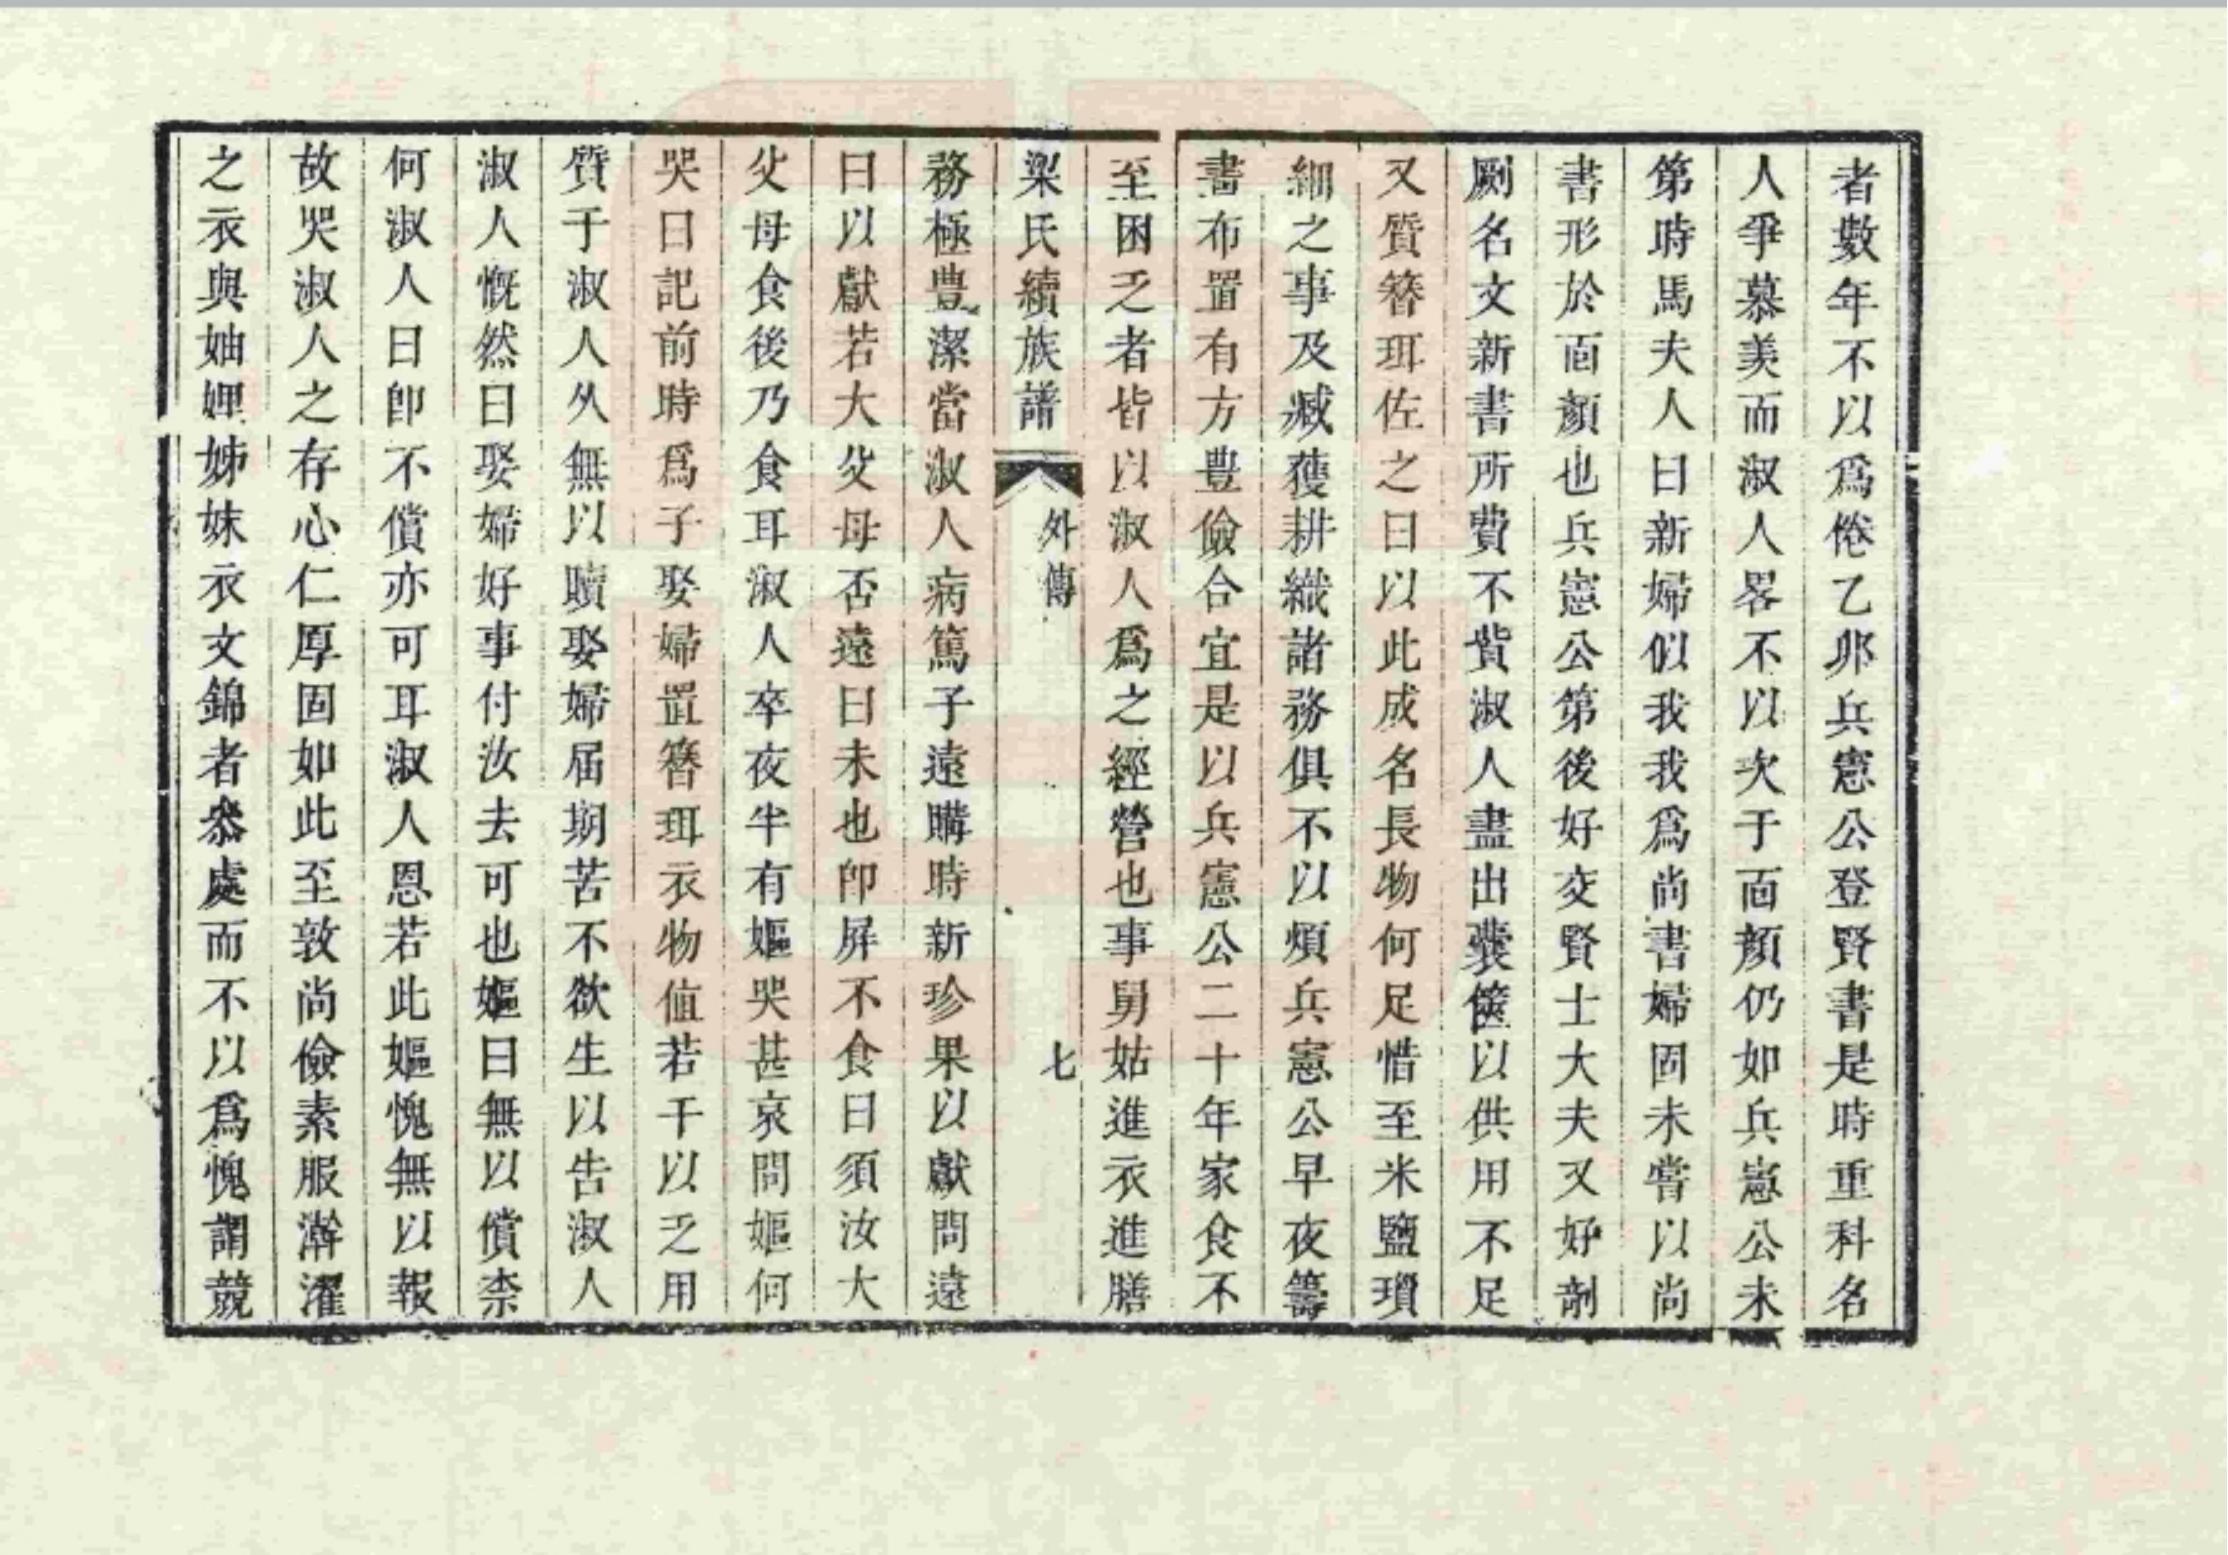 者數年不以爲倦乙卯兵憲公登賢書是時重科名
人爭慕美而淑人畧不以次于面顏仍如兵憲公未
第時馬夫人曰新婦似我我爲尚書婦固未嘗以尚
書形於面顏也兵憲公第後好交賢士大夫又好剞
劂名文新書所費不貲淑人盡出裝篋以供用不足
又質簪珥佐之曰以此成名長物何足惜至米鹽瑣
細之事及臧獲耕織諸務俱不以煩兵憲公早夜籌
畫布置有方豐儉合宜是以兵憲公二十年家食不
至困乏者皆以淑人爲之經營也事舅姑進衣進膳
梁氏續族譜 外傳 七
務極豊潔當淑人病篤子遠購時新珍果以獻問遠
曰以獻若大父母否遠曰未也卽屏不食曰須汝大
父母食後乃食耳淑人卒夜半有嫗哭甚哀問嫗何
哭曰記前時爲子娶婦置簪珥衣物値若干以乏用
質于淑人久無以贖娶婦届期苦不欲生以告淑人
淑人慨然曰娶婦好事付汝去可也嫗曰無以償柰
何淑人曰卽不償亦可耳淑人恩若此嫗愧無以報
故哭淑人之存心仁厚固如此至敦尚儉素服澣濯
之衣與妯娌姊妹衣文錦者叅處而不以爲愧謂競